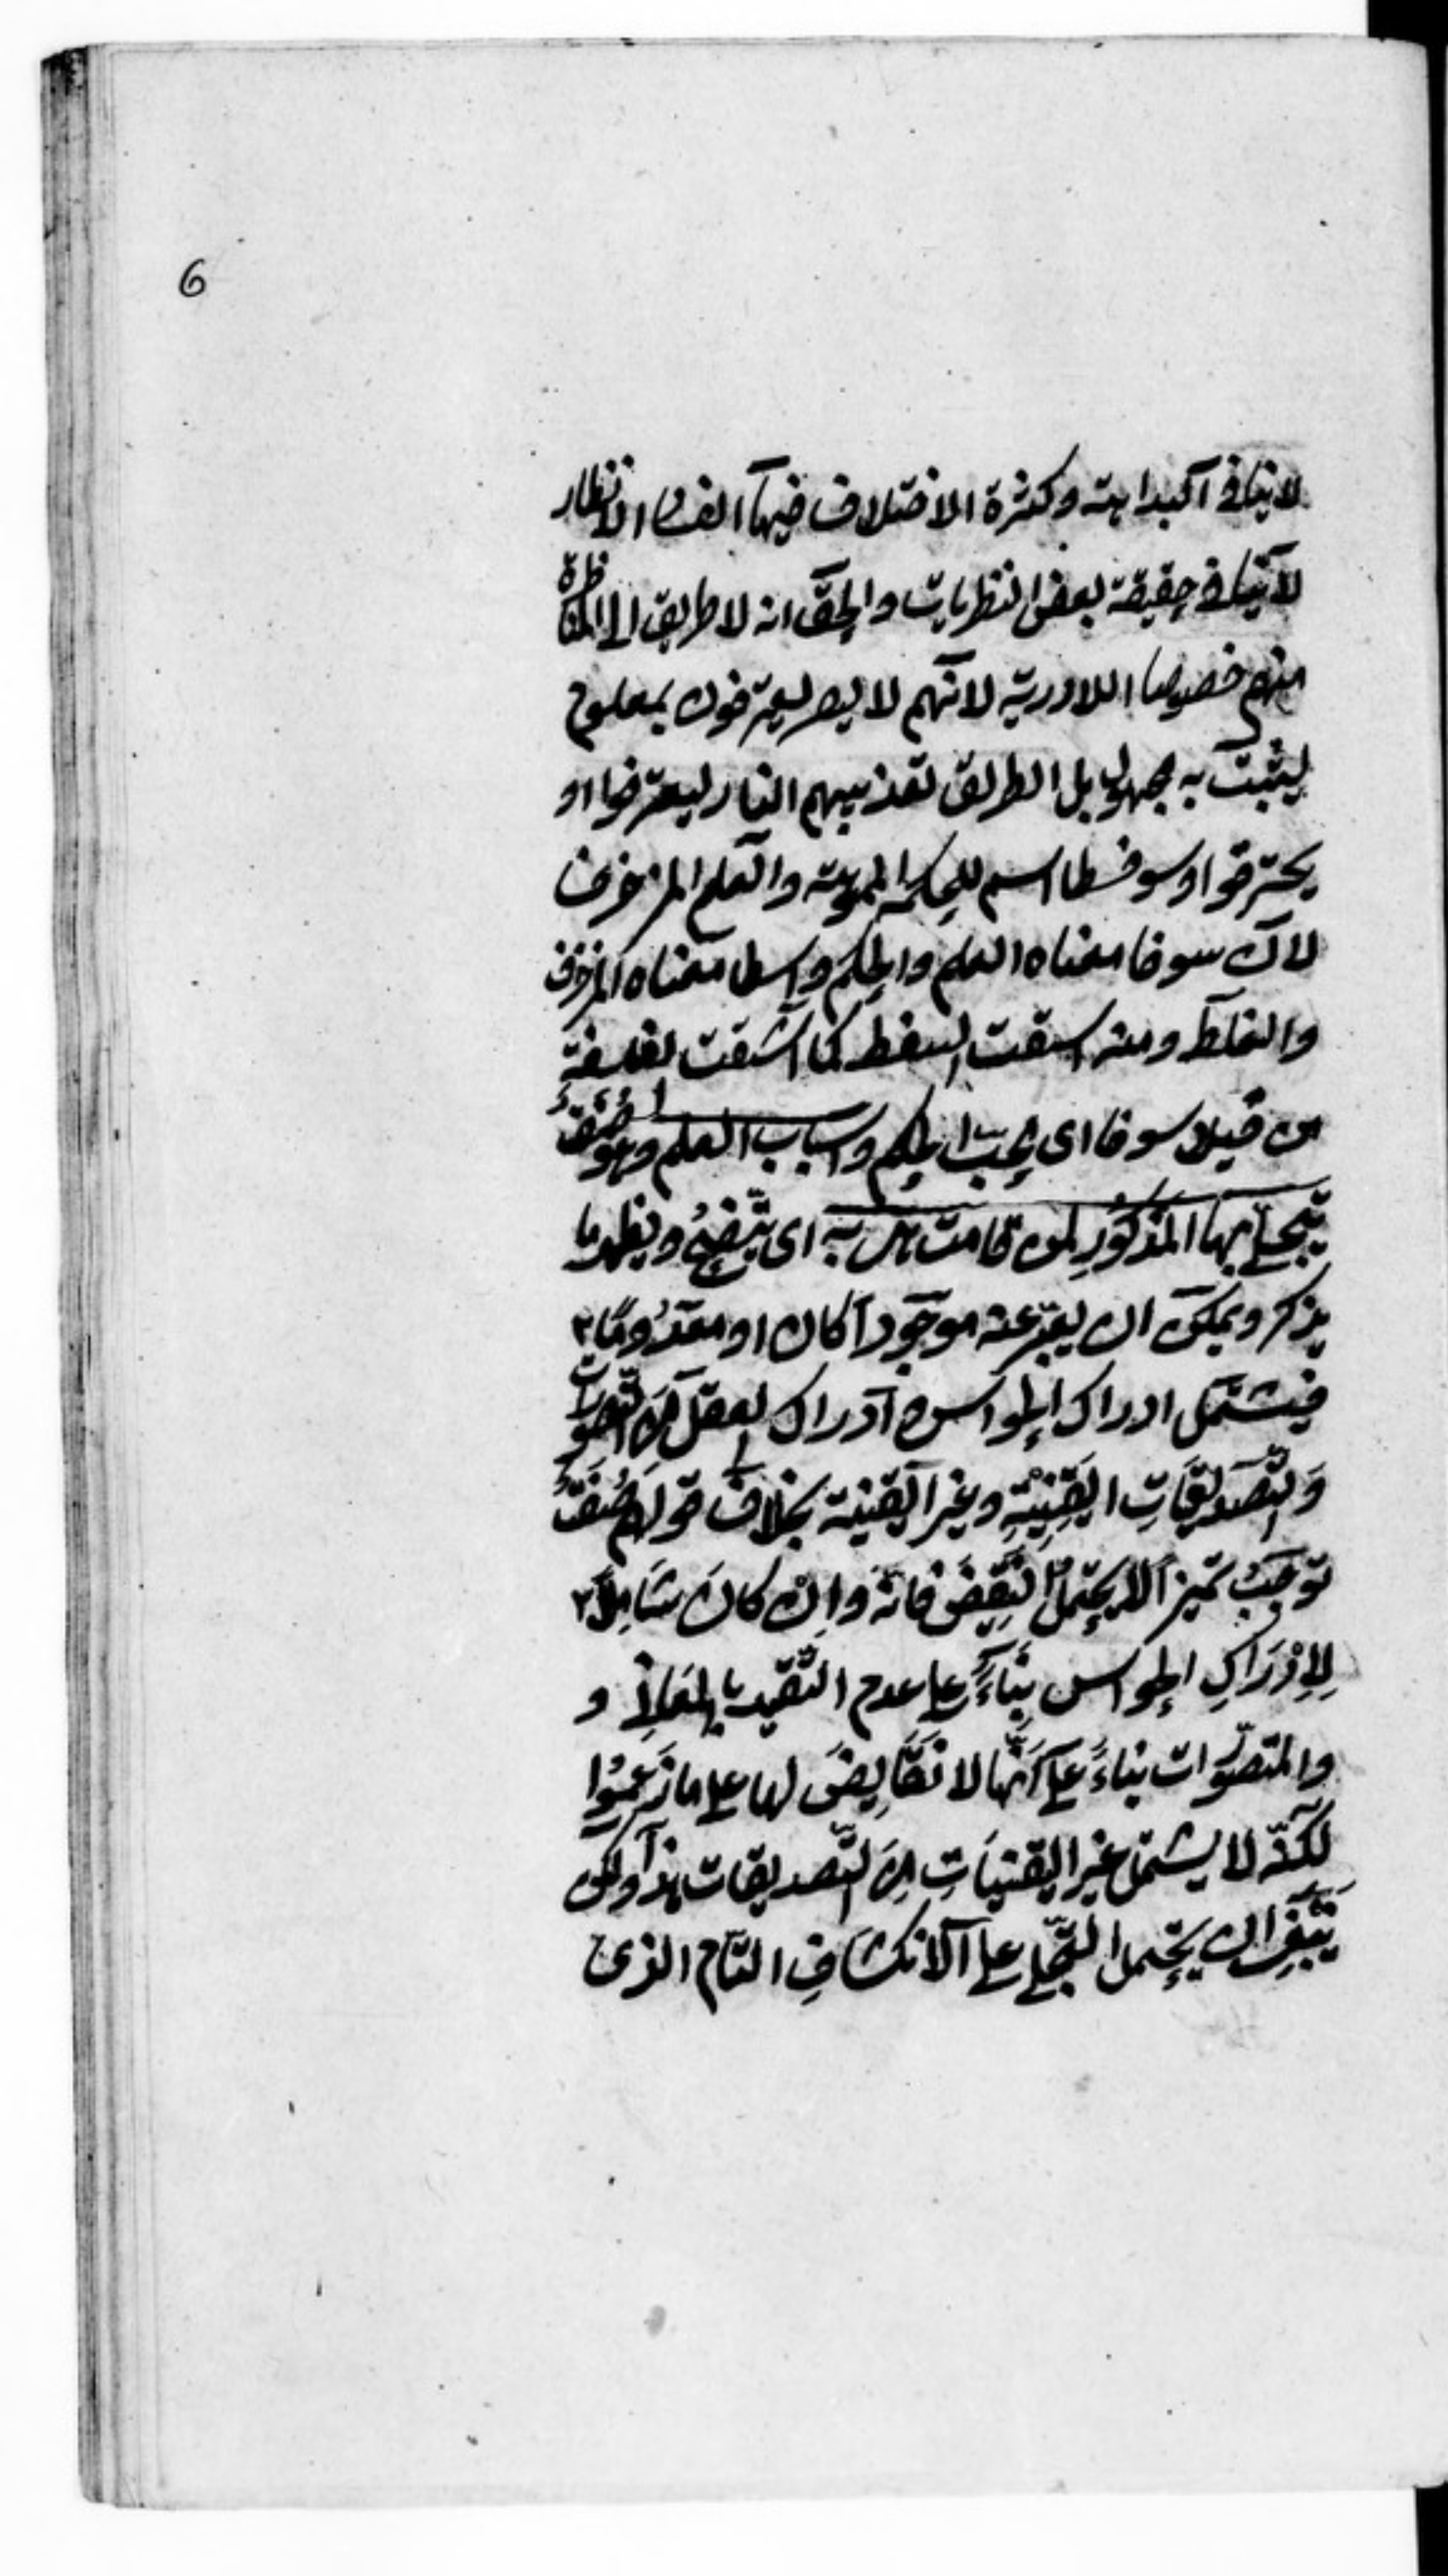 6
لا ينافى البداهة وكثرة الاختلاف فيها لفساد الانظار
لا ينافى حقيقة بعض النظريات والحق انه لا طريق الى المناظرة
منهم خصوصا اللادرية لانهم لا يعترفون بمعلوم
ليثبت به مجهول بل الطريق تعذيبهم النار ليعترفوا او
يحترقوا وسوفسطا اسم للحكمة المموهة والعلم المزخرف
لان سوفا معناه العلم والحكم واسطا معناه المزخرف
والغلط ومنه اشتقت السفسطة كما اشتقت الفلسفة
من فيلاسوفا اى محب الحكم واسباب العلم وهو صفة
يتجلى بها المذكور لمن قامت هى به اى يتضح ويظهر ما
يذكر ويمكن ان يعبر عنه موجودا كان او معدوما
فيشتمل ادراك الحواس وادراك العقل من التصورات
والتصديقات اليقينية وغير اليقينية بخلاف قولهم صفة
توجب تميزا لا يحتمل النقيض فانه وان كان شاملا
للادراك الحواس بناء على عدم التقييد بالمعانى و
والتصورات بناء على انها لا نقايض لها على ما زعموا
لكنه لا يشتمل غير اليقينيات من التصديقات هذا ولكن
ينبغى ان يحتمل التجلى على الانكشاف التام الذى